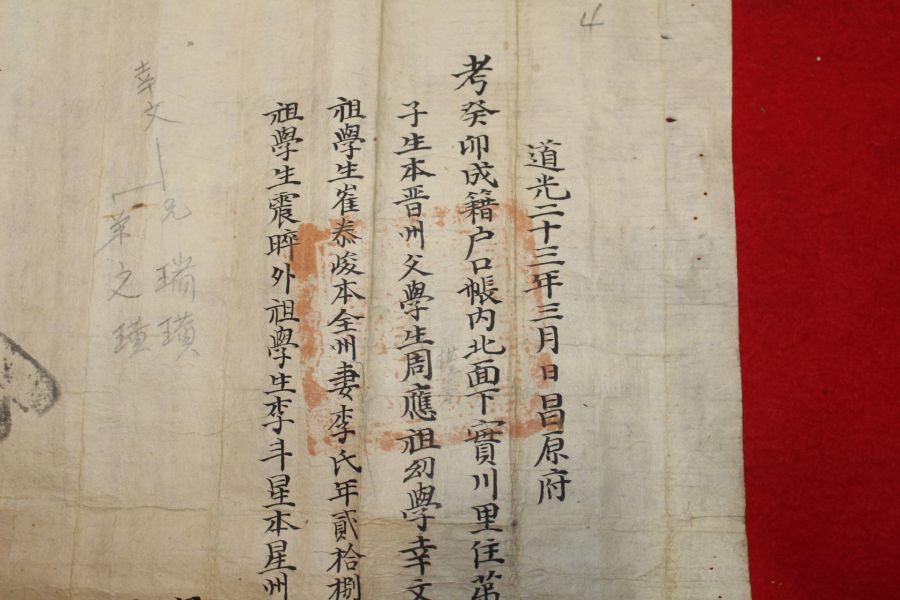 4
道光二十三年三月 日昌原府
考癸卯成籍户口帳内北面下實川里住第
子生本晋州父學生周應祖幼學幸文
祖學生崔泰峻本全州妻李氏年貳拾捌
祖學生震晬外祖學生李斗星本星州
幸文
兄 瑞璜
弟 之璜